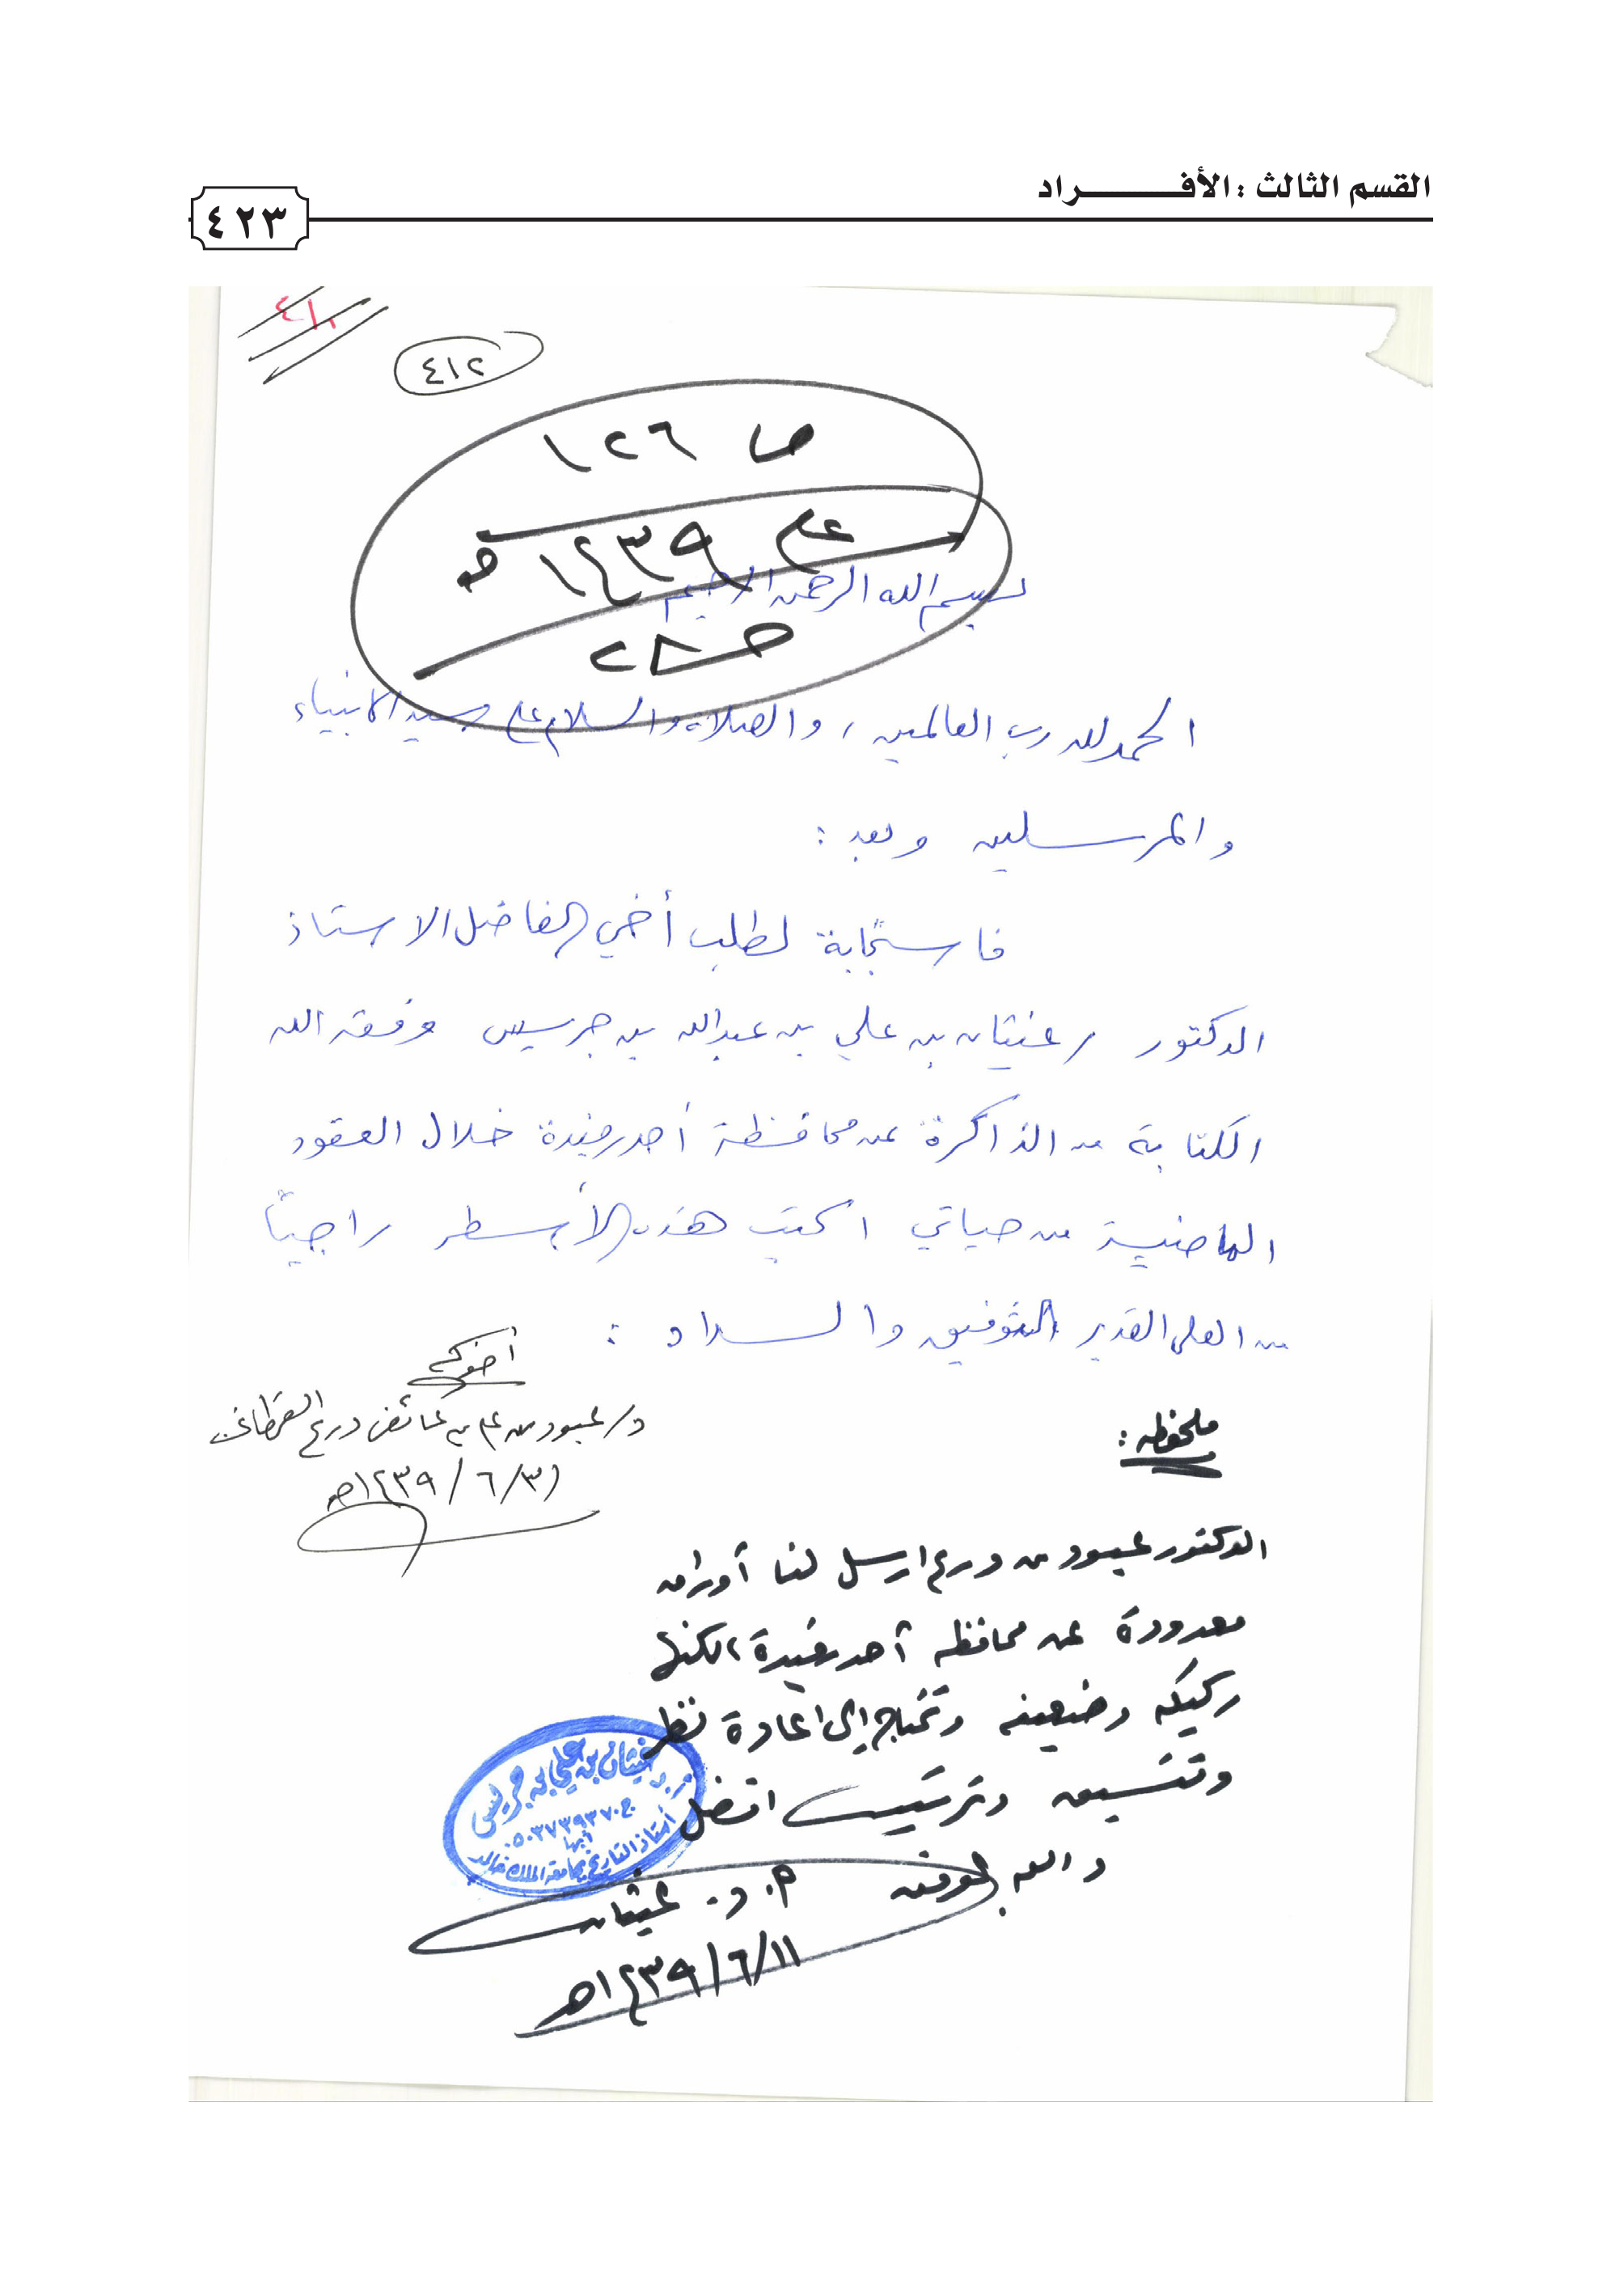 القسم الثالث : الأفـــــــراد
٤٢٣
٤١٢
ص ١٢٦
عام ١٤٣٩ هـ
ح ٢٨
بسم الله الرحمن الرحيم
الحمد لله رب العالمين ، والصلاة والسلام على سيد الانبياء
والمرسلين وبعد :
فاستجابة لطلب أخي الفاضل الاستاذ
الدكتور / غيثان بن علي بن عبدالله بن جريس وفقه الله
الكتابة من الذاكرة عن محافظة أحد رفيدة خلال العقود
الماضية من حياتي اكتب هذه الأسطر راجياً
من العلي القدير التوفيق والسداد :
أخوكم
د/ عبود بن علي بن عائض درع القحطاني
١٤٣٩ / ٦ / هـ
ملحوظه :
الدكتور عبود بن درع ارسل لنا أوراق
معدودة عن محافظه أحد رفيدة ، لكنها
ركيكه وضعيفه وتحتاج إلى اعادة نظر
وتنسيق وترتيب افضل
والله الموفق
أ. د. غيثان
١٤٣٩/٦/١١هـ
أ.د. غيثان بن علي بن جريس
ج . ٠٥٠٣٧٣٩٣٧٠
أبها
أستاذ التاريخ بجامعة الملك خالد